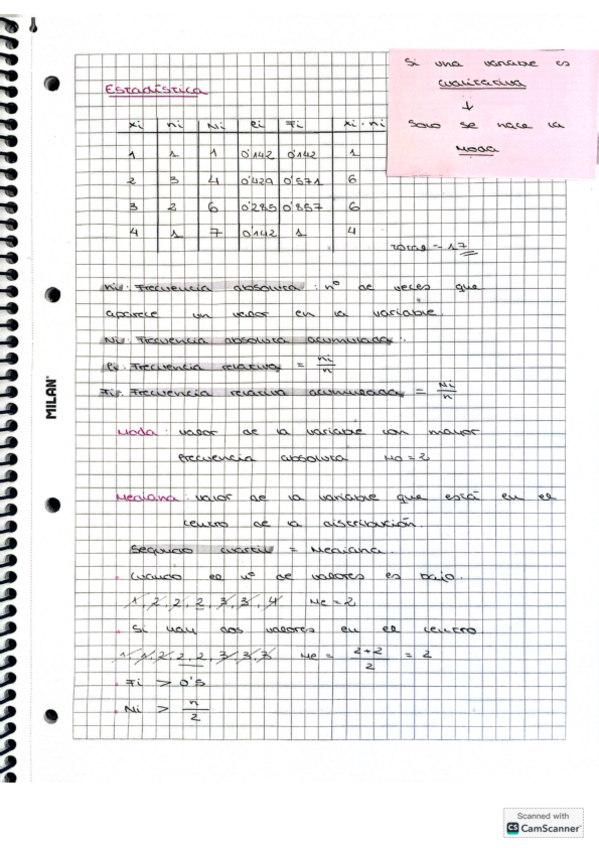 Si una variable es
cualitativa
↓
Solo se hace la
Moda
Estadística
xi ni Ni fi Fi xi·ni
1 1 1 0'142 0'142 1
2 3 4 0'429 0'571 6
3 2 6 0'285 0'857 6
4 1 7 0'142 1 4
Total = 17
ni: Frecuencia absoluta: nº de veces que
aparece un valor en la variable.
Ni: Frecuencia absoluta acumulada.
fi: Frecuencia relativa = ni/n
Fi: Frecuencia relativa acumulada = Ni/n
Moda: valor de la variable con mayor
frecuencia absoluta Mo = 2
Mediana: valor de la variable que está en el
centro de la distribución.
Segundo cuartil = Mediana.
· Cuando el nº de valores es bajo.
1, 2, 2, 2, 3, 3, 4 Me = 2
· Si hay dos valores en el centro.
1, 1, 2, 2, 2, 3, 3, 3 Me = 2+2/2 = 2
· Fi > 0'5
· Ni > n/2
MILAN
Scanned with
CS CamScanner